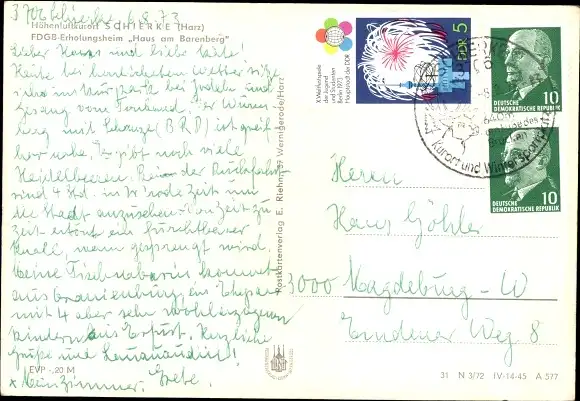 3706 Schierke 6.8.73
Höhenluftkurort SCHIERKE (Harz)
FDGB-Erholungsheim „Haus am Barenberg"
Lieber Hans und liebe Leute!
Heute bei herrlichstem Wetter sitze
schon im Kurpark bei Jodeln und
Gesang vom Tonband. Der Wurm
berg mit Schanze (BRD) ist greif
bar nahe. Es gibt noch viele
Heidelbeeren. Bei der Rückfahrt
sind 4 Std. in W'rode Zeit um
die Stadt anzusehen. Von Zeit zu
Zeit ertönt ein furchtbarer
Knall, wenn gesprengt wird.
Meine Tischnabarin kommt
aus Oranienburg, ein Ehepaar
mit 4 aber sehr wohlerzogenen
Kindern aus Erfurt. Herzliche
Grüße und
Grete.
x Mein Zimmer.
EVP -,20 M
Postkartenverlag E. Riehm, 37 Wernigerode/Harz
X. Weltfestspiele
der Jugend
und Studenten
Berlin 1973
Hauptstadt der DDR
DDR 5
10
DEUTSCHE
DEMOKRATISCHE REPUBLIK
10
DEUTSCHE
DEMOKRATISCHE REPUBLIK
Kurort und Wintersportplatz
Herrn
Hans Göhler
3000 Magdeburg - W
Emdener Weg 8
31 N 3/72 IV-14-45 A 577